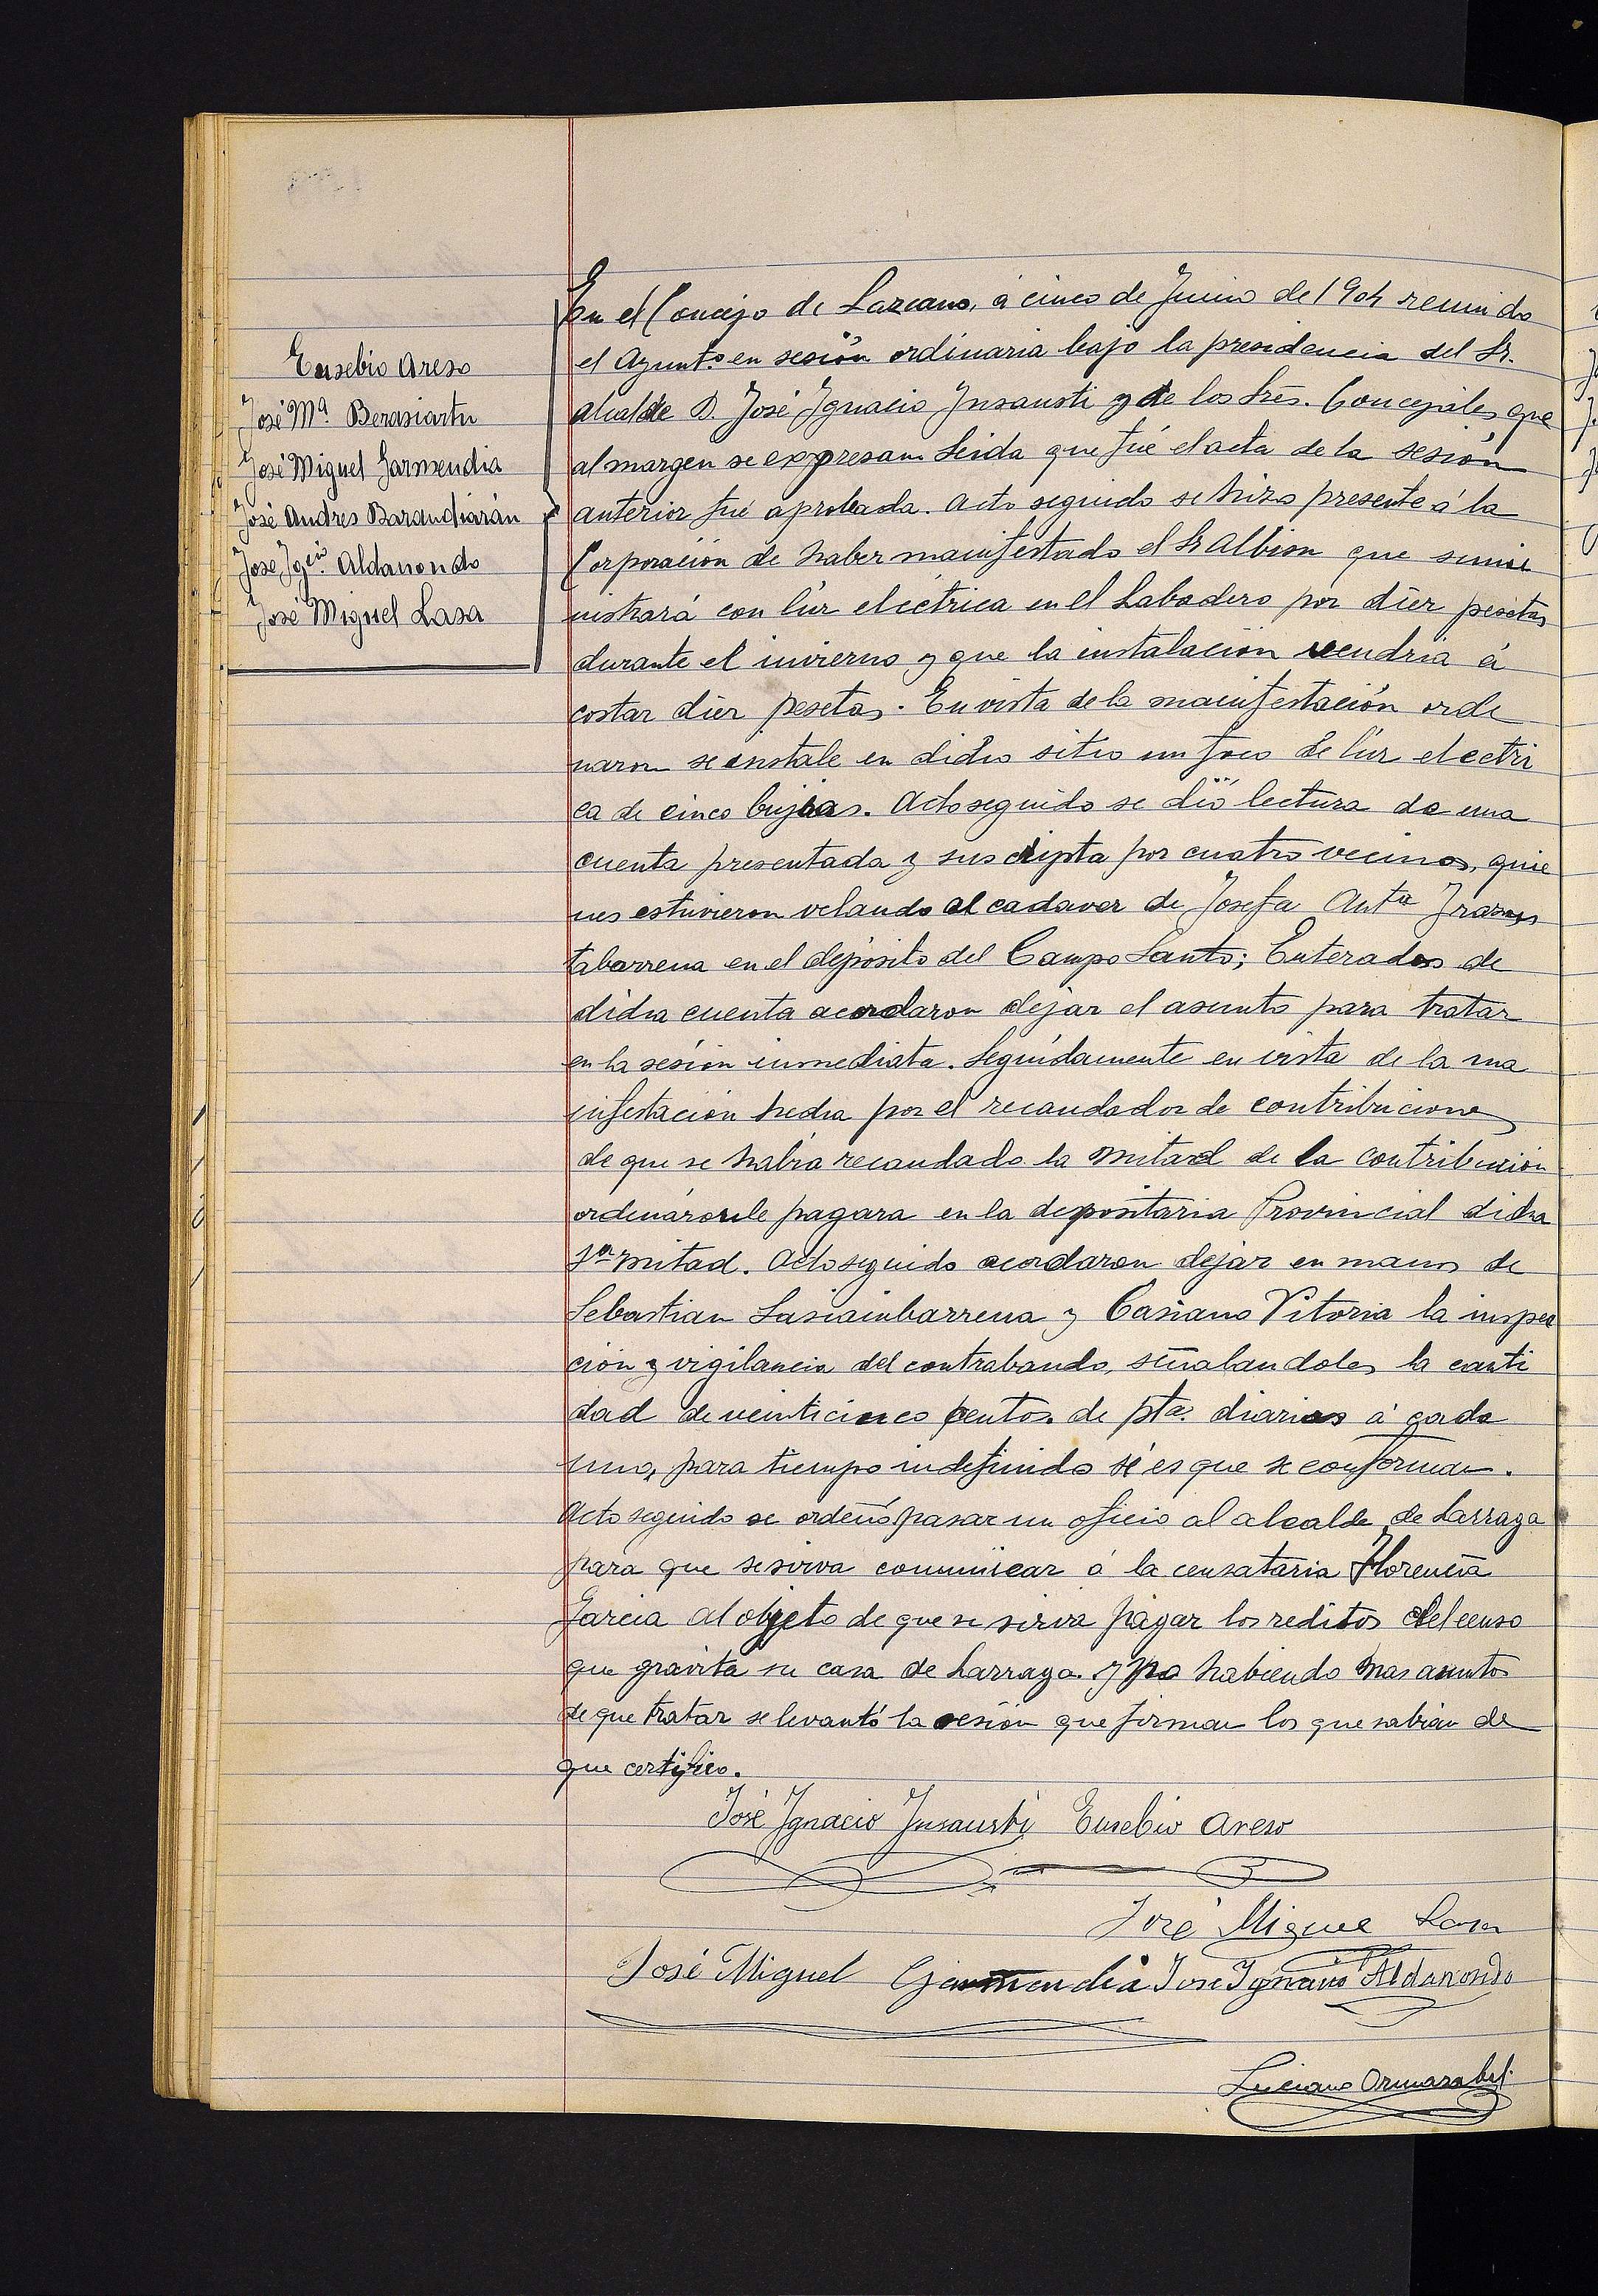 Eusebio Areso
José Mª. Berasiartu
José Miguel Garmendia
José Andres Barandiarán
Jose Igcio. Aldanondo
José Miguel Lasa
En el Concejo de Lazcano, á cinco de Junio de 1904 reunido
el Ayunto. en sesión ordinaria bajo la presidencia del Sr.
alcalde D. José Ignacio Insausti y de los Sres. Concejales que
al margen se expresan leida que fué el acta de la sesión
anterior fué aprobada. Acto seguido se hizo presente á la
Corporación de haber manifestado el Sr Albisu que sumi
nistrará con lúz eléctrica en el Labadero por diez pesetas
durante el invierno y que la instalación vendria á
costar diez pesetas. En vista de la manifestación orde
naron se instale en dicho sitio un foco de lúz electri
ca de cinco bujias. Acto seguido se dió lectura de una
cuenta presentada y suscripta por cuatro vecinos, quie
nes estuvieron velando al cadaver de Josefa Anta
tabarrena en el depósito del Campo Santo; Enterados de
dicha cuenta acordaron dejar el asunto para tratar
en la sesión inmediata. Seguidamente en vista de la ma
nifestación hecha por el recaudador de contribuciones
de que se habia recaudado la mitad de la contribución
ordenáronle pagara en la depositaria Provincial dicha
1ª mitad. Acto seguido acordaron dejar en manos de
Sebastian Lasciainbarrena y Casiano Vitoria la inspec
ción y vigilancia del contrabando, señalandoles la canti
dad de veinticinco centos. de pta. diarias á cada
uno, para tiempo indefinido si es que se conforman.
Acto seguido se ordenó pasar un oficio al alcalde de Larraga
para que se sirva comunicar á la censataria Florencia
Garcia al objeto de que se sirva pagar los reditos del censo
que gravita su casa de Larraga. y no habiendo mas asuntos
de que tratar se levantó la sesión que firman los que sabian de
que certifico.
José Ignacio Insausti Eusebio Areso
José Miguel Lasa
José Miguel Garmendia José Ignacio Aldanondo
Luciano Ormazabal